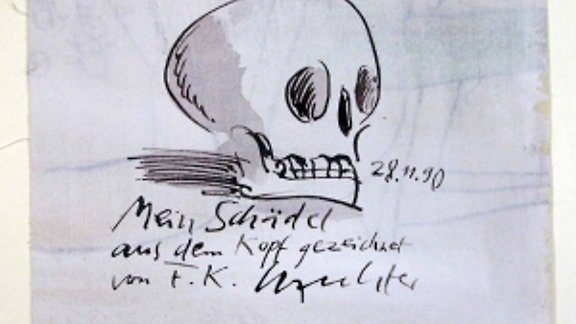 28.11.90
Mein Schädel
aus dem Kopf gezeichnet
von F. K. Waechter